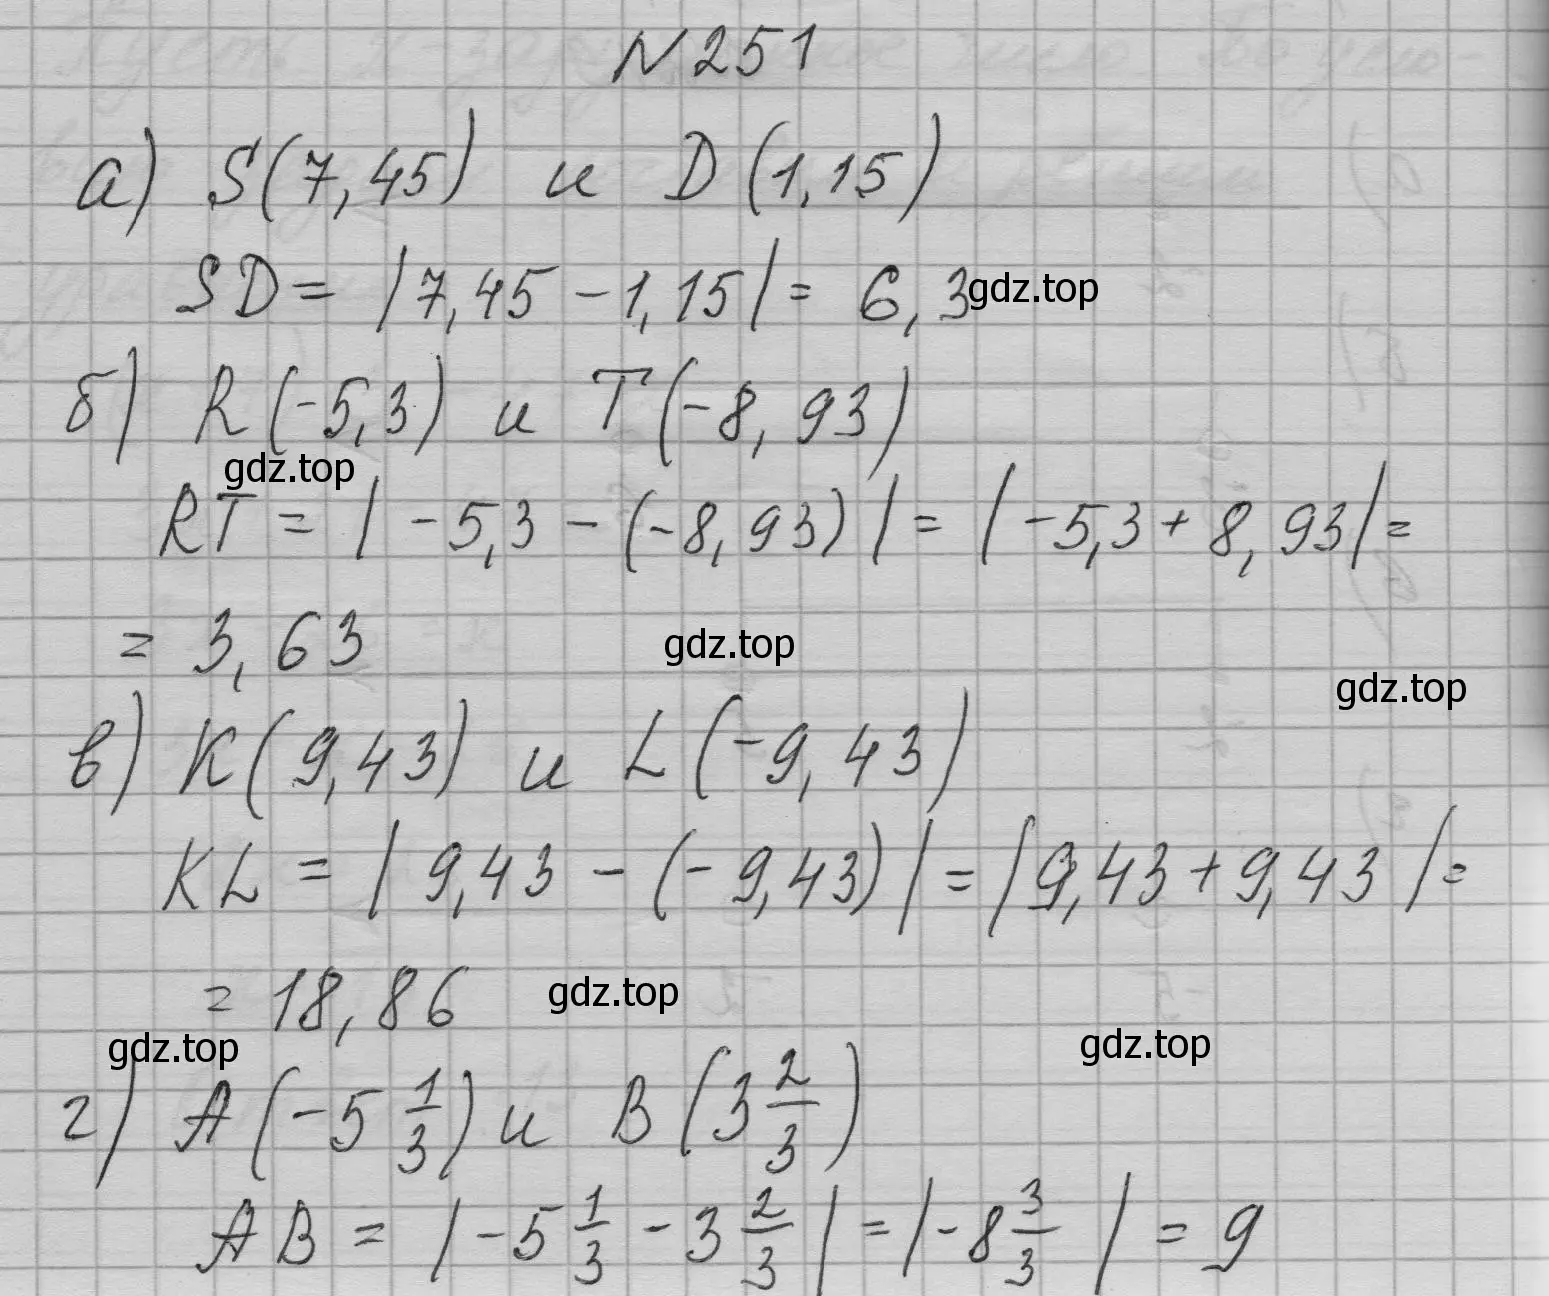 N 251
а) S(7,45) и D(1,15)
SD = |7,45 - 1,15| = 6,3 gdz.top
б) R(-5,3) и T(-8,93)
gdz.top
RT = |-5,3 - (-8,93)| = |-5,3 + 8,93| =
= 3,63 gdz.top
gdz.top
в) K(9,43) и L(-9,43)
KL = |9,43 - (-9,43)| = |9,43 + 9,43| =
= 18,86 gdz.top
gdz.top gdz.top
г) A(-5 1/3) и B(3 2/3)
AB = |-5 1/3 - 3 2/3| = |-8 3/3| = 9